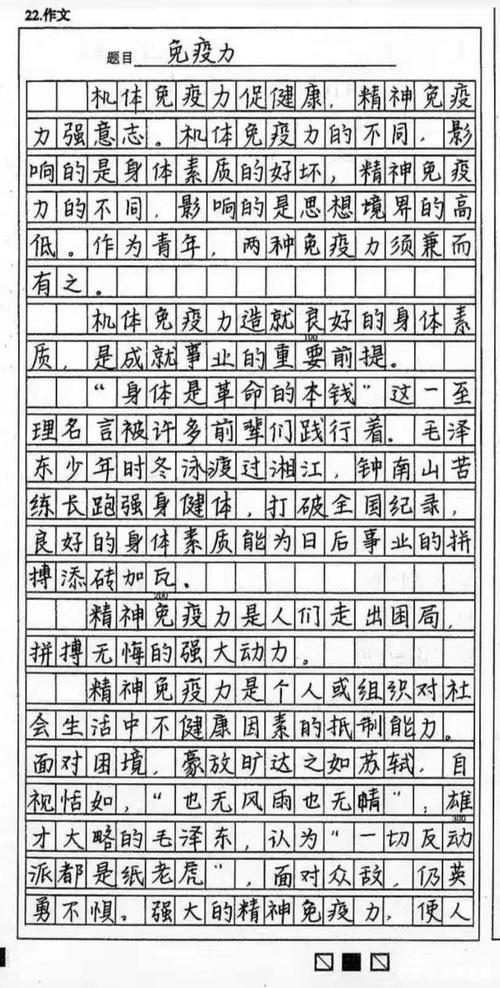 22.作文
题目 免疫力
机体免疫力促健康，精神免疫
力强意志。机体免疫力的不同，影
响的是身体素质的好坏，精神免疫
力的不同，影响的是思想境界的高
低。作为青年，两种免疫力须兼而
有之。
机体免疫力造就良好的身体素
100
质，是成就事业的重要前提。
“身体是革命的本钱”这一至
理名言被许多前辈们践行着。毛泽
东少年时冬泳渡过湘江，钟南山苦
练长跑强身健体，打破全国纪录，
良好的身体素质能为日后事业的拼
搏添砖加瓦。
200
精神免疫力是人们走出困局，
拼搏无悔的强大动力。
精神免疫力是个人或组织对社
会生活中不健康因素的抵制能力。
面对困境，豪放旷达之如苏轼，自
视恬如，“也无风雨也无晴”；雄
300
才大略的毛泽东，认为“一切反动
派都是纸老虎”，面对众敌，仍英
勇不惧。强大的精神免疫力，使人